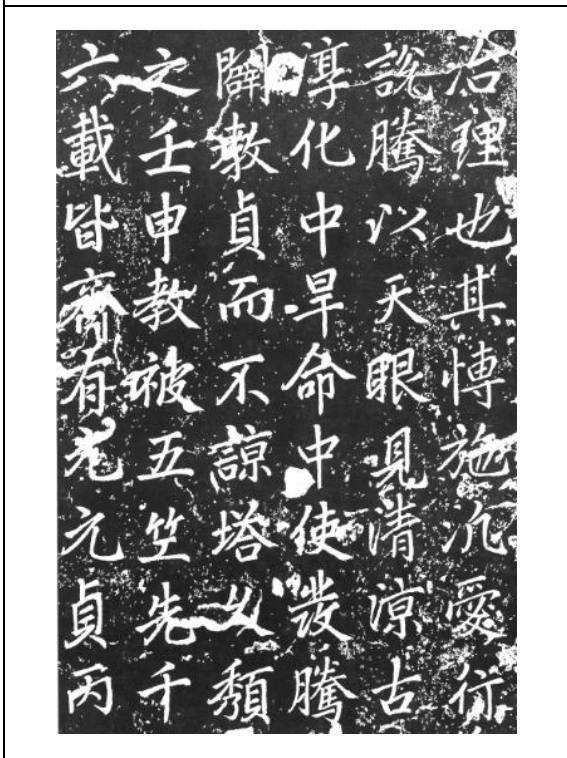 治理也其愽施汎愛衍
說騰以天眼見清涼古
淳化中旱命中使發騰
闢敷貞而不諒塔又頹
之壬申教被五竺先千
六載皆齊有元貞丙